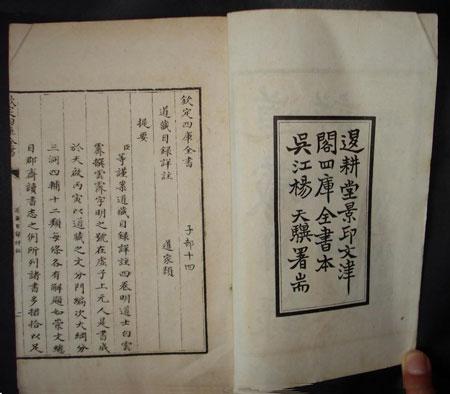 退耕堂景印文津
閣四庫全書本
吳江楊天驥署耑
欽定四庫全書 子部十四
道藏目錄詳註 道家類
提要
臣等謹案道藏目錄詳註四卷明道士白雲
霽撰雲霽字明之號在虛子上元人是書成
於天啟丙寅以道藏之文分門編次大綱分
三洞四輔十二類每條各有解題如崇文總
目郡齋讀書志之例所列諸書多捃拾以足
道藏目錄詳註